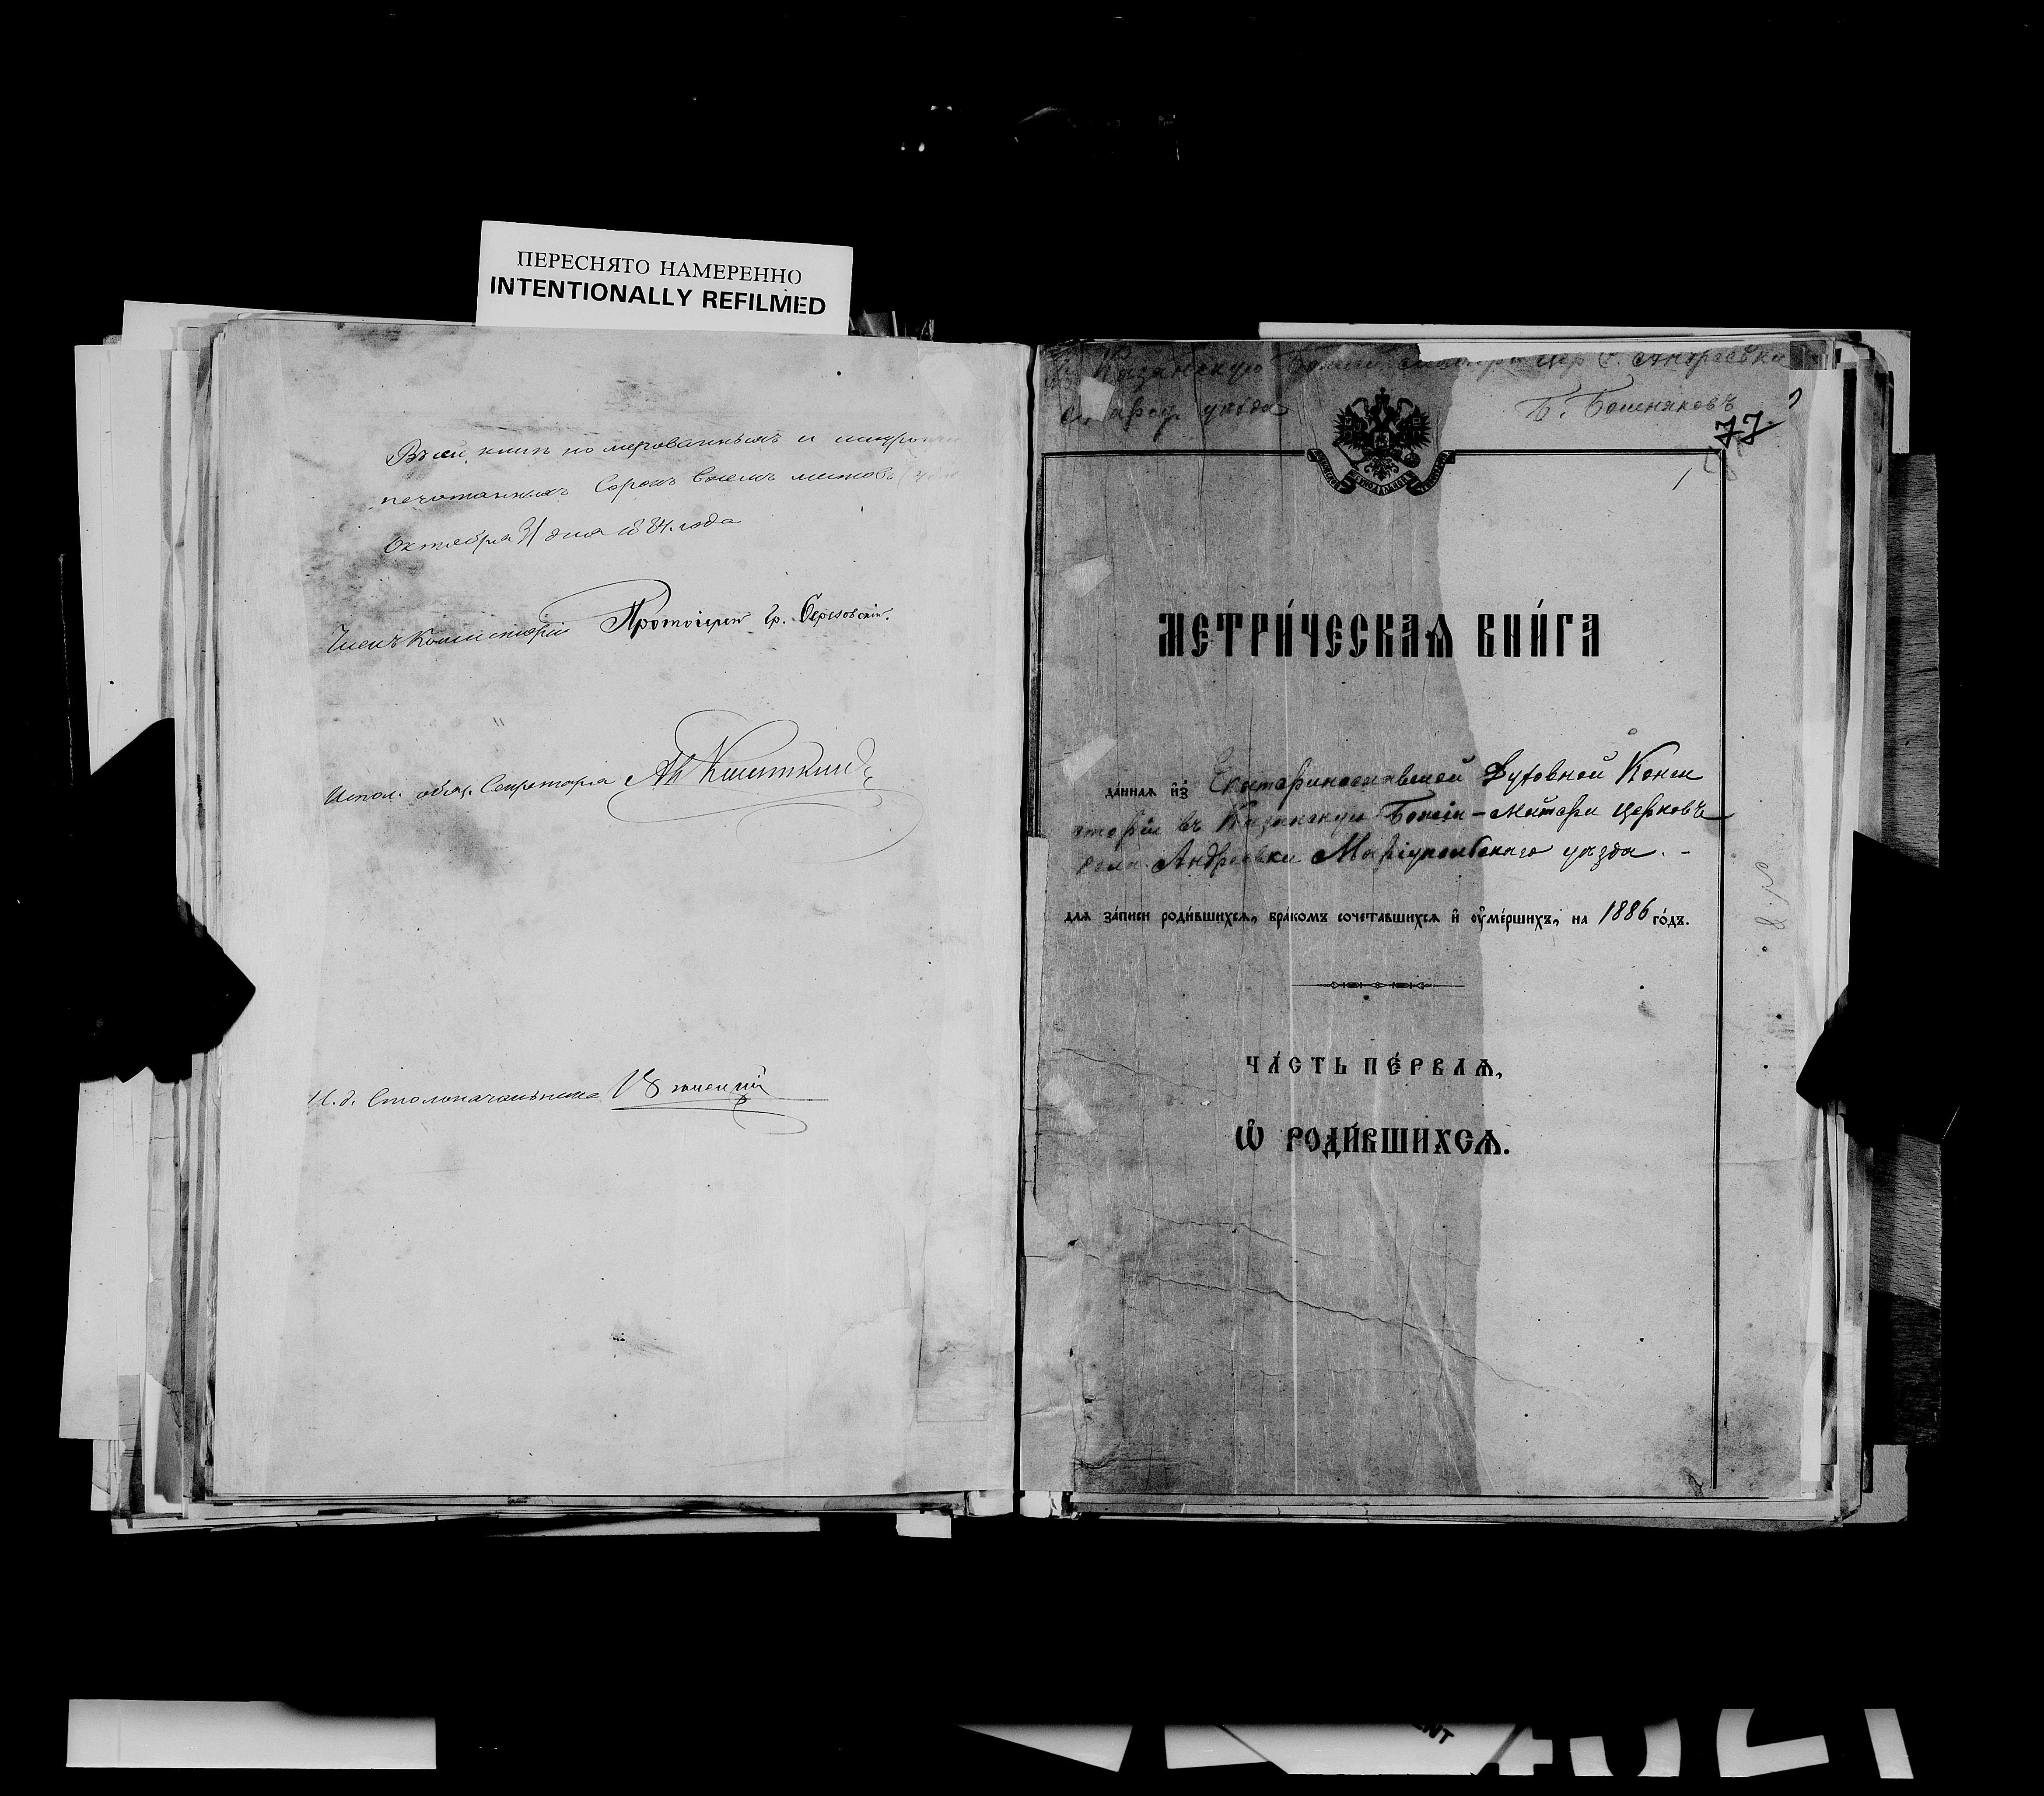 ПЕРЕСНЯТО НАМЕРЕННО
INTENTIONALLY REFILMED
В сей книгѣ номерованныхъ и шнуро
печатанныхъ Сорокъ восемь листовъ
Октября 31 дня 1884 года
Членъ Консисторіи Протоіерей Гр.
Испол. обяз. Секретаря
И. д. Столоначальника
Въ Казанскую Божіей матери цер. с. Андреевки
уѣзда
Б. Бошняковъ
77
1
МЕТРИ́ЧЕСКАѦ КНИ́ГА
да́ннаѧ и҆з̾ Екатеринославской Духовной Конси
сторіи въ Казанскую Божіи-Матери Церковь
села Андреевки Маріупольскаго уѣзда. -
длѧ за́писи роди́вшихсѧ, бра́комъ сочета́вшихсѧ и҆ ᲂу҆ме́ршихъ, на 1886 го́дъ.
ЧА́СТЬ ПЕ́РВАѦ,
Ѽ РОДИ́ВШИХСѦ.